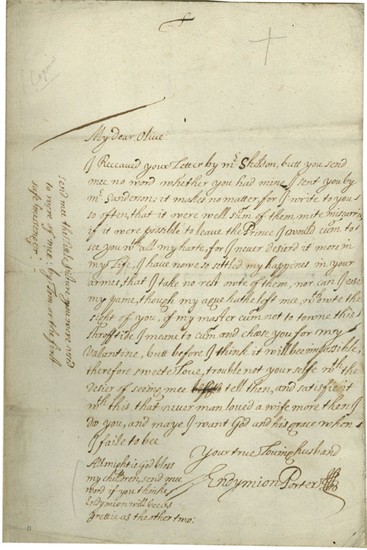 Copie
My dear Olive:
I Receaved your Letter by mr Sheldon, butt you send
mee no word whether you had mine I sent you by
mr Sanderson; it makes no matter, for I write to you
so often, that it were well sum of them mite miscarry
if it were possible to leave the Prince I would cum to
see you with all my harte, for I never desierd it more in
my Life, I have now so settled my happines in your
armes, that I take no rest owte of them, nor can I ease
my paine, though my ague hathe left mee, withowte the
sight of you, if my master cum not to towne this
I meane to cum and chose you for my
Valantine, butt before I think it will bee impossible,
therefore sweete Love, trouble not your selfe with the
desier of seeing mee tell then, and satisfie it
with this that never man loved a wife more then I
do you, and maye I want God and his grace when
I faile to bee
Your true Loving husband
Endymion Porter
Allmightie God bless
my children, send mee
word if you thinke
Endymion will bee as
prettie as the other two:
send mee the
to